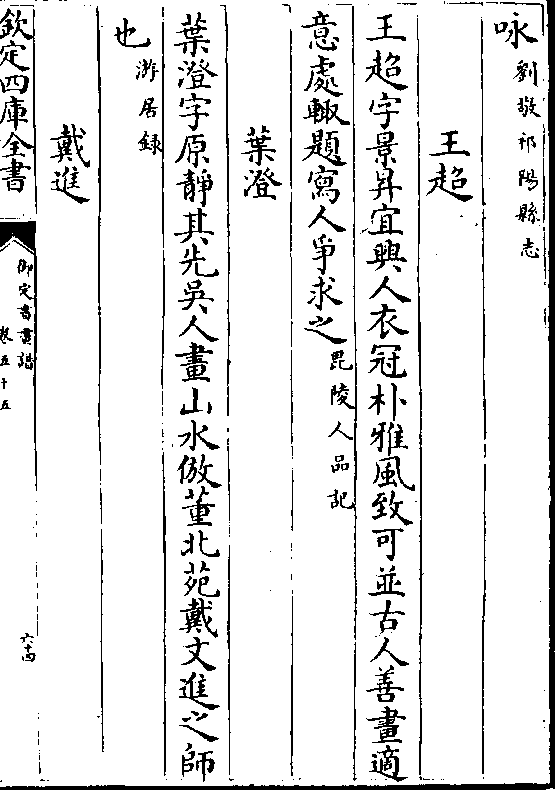 咏劉敬祁陽縣志
王超
王超字景昇宜興人衣冠朴雅風致可並古人善畫適
意處輙題寫人爭求之毘陵人品記
葉澄
葉澄字原靜其先吳人畫山水倣董北苑戴文進之師
也游居録
戴進
欽定四庫全書
御定書畫譜
卷五十五
六十四